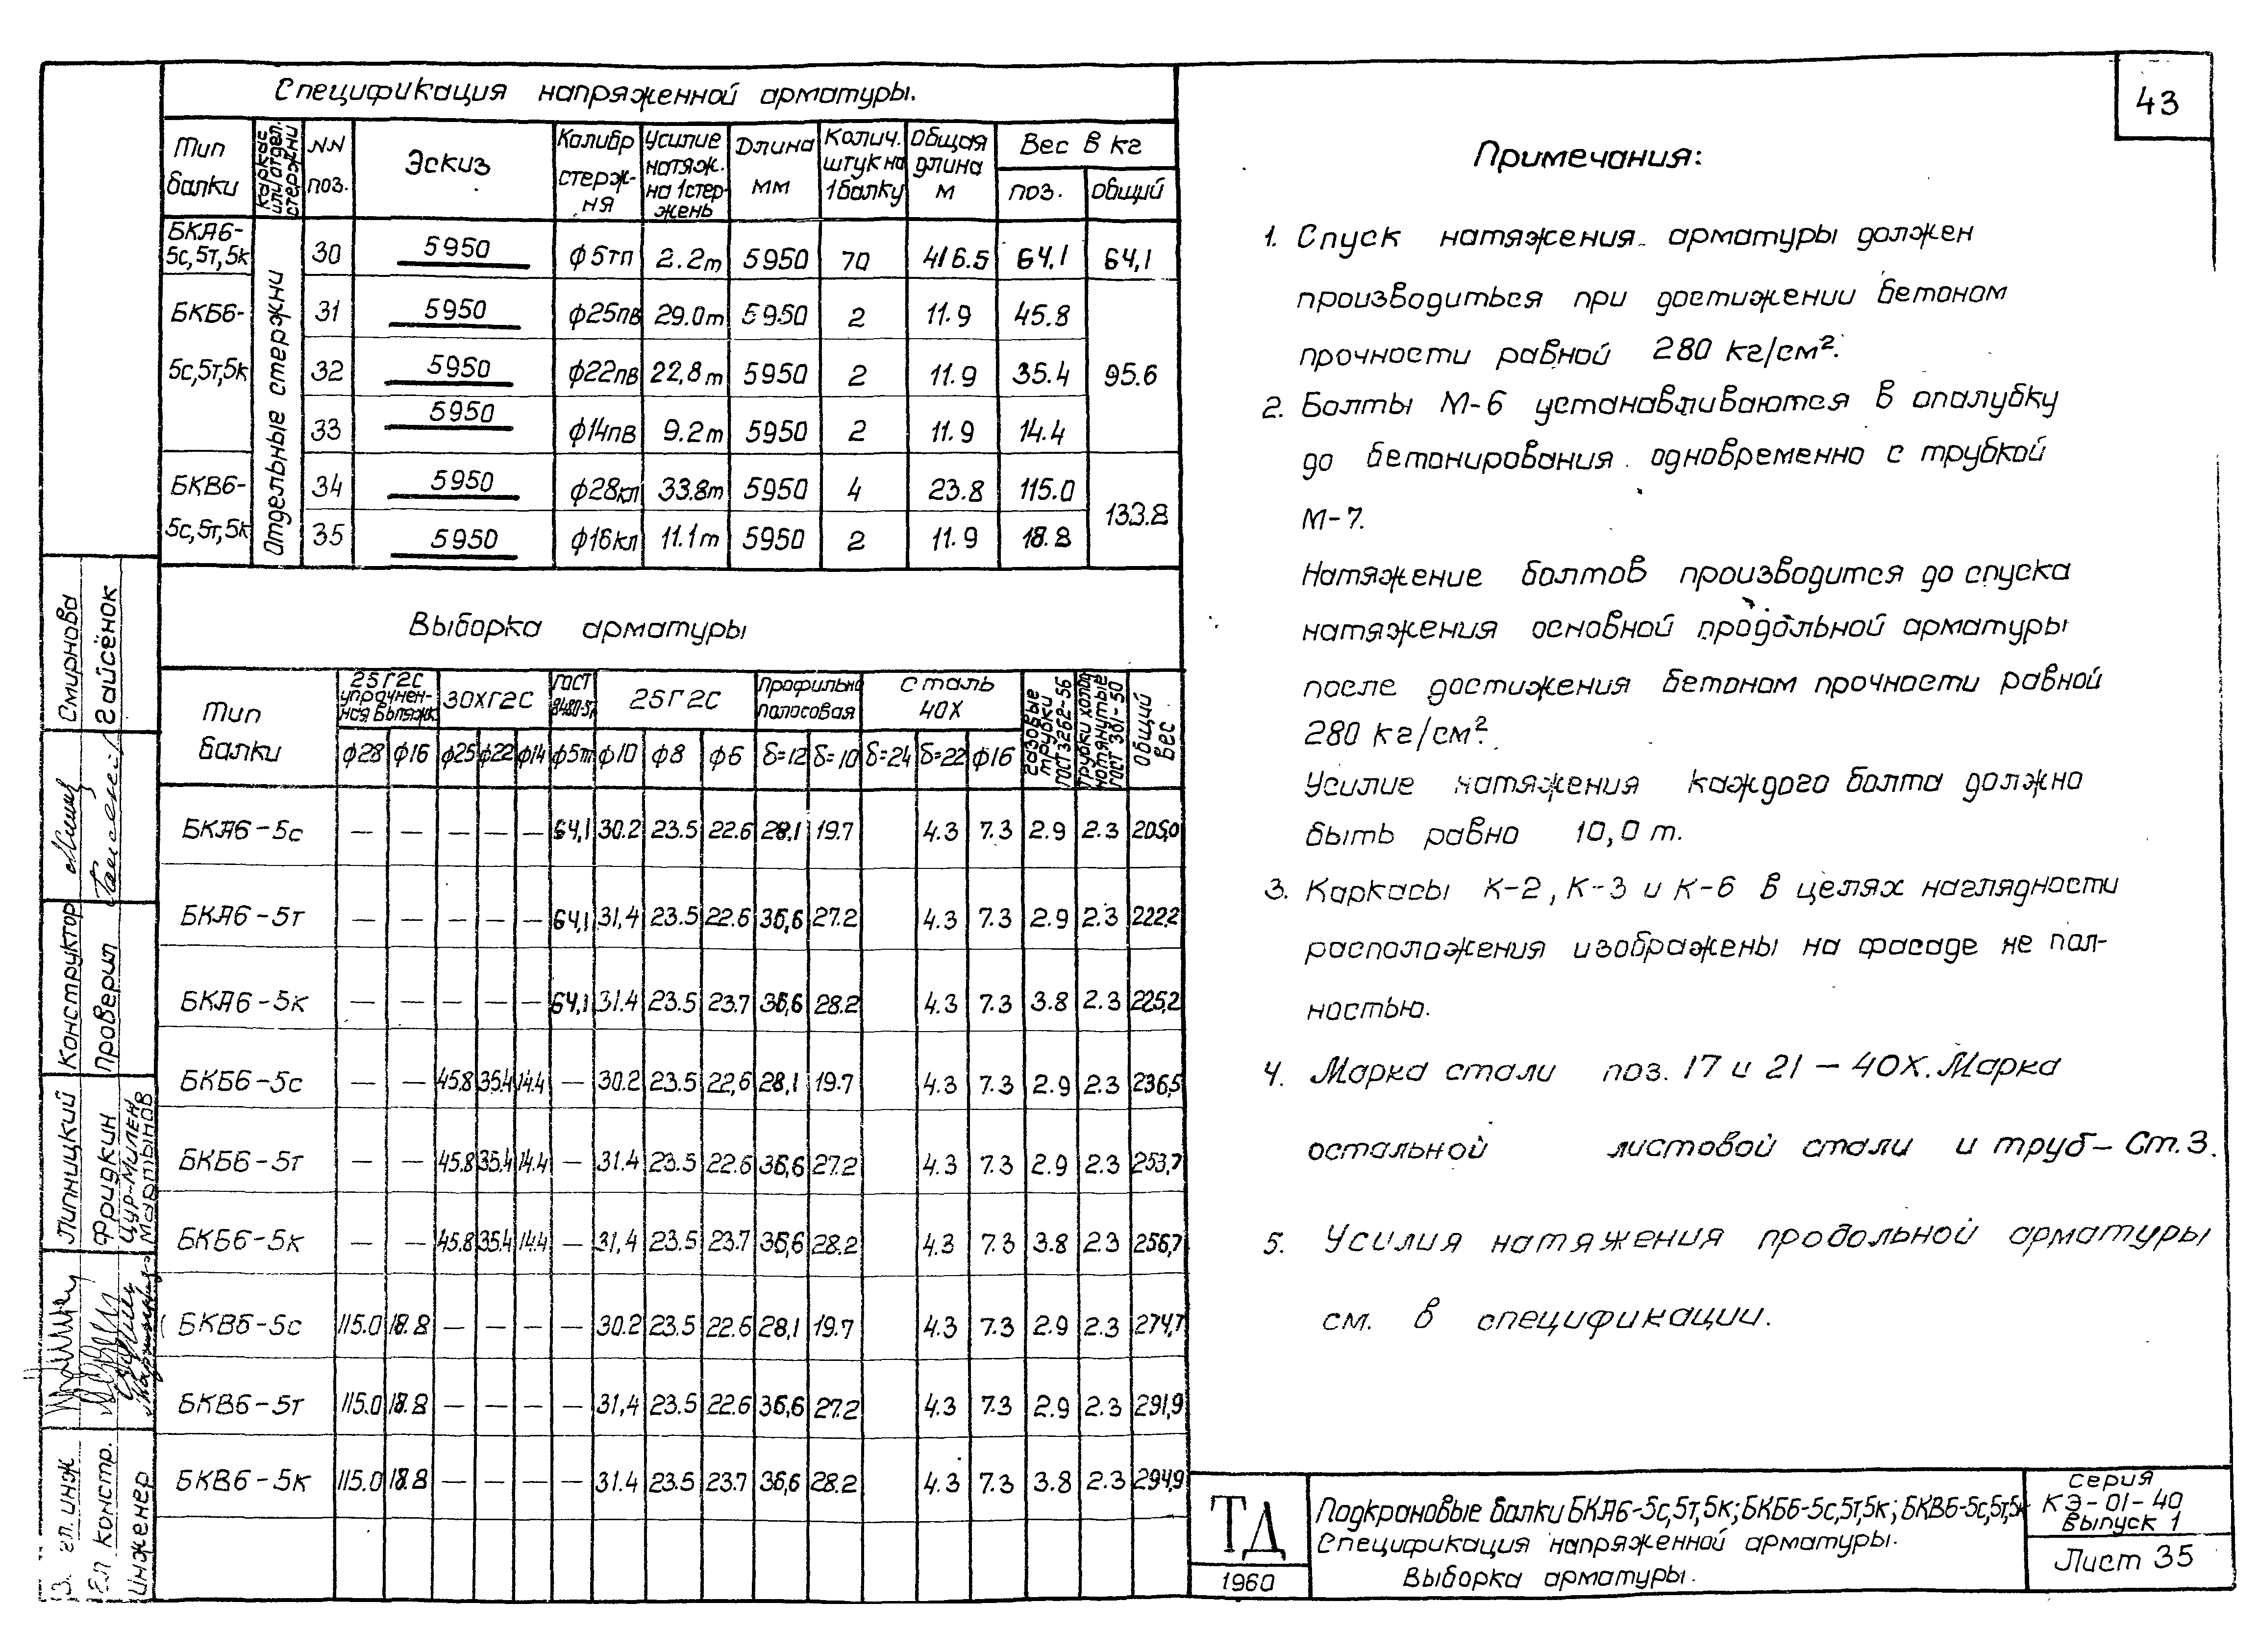 43
Спецификация напряженной арматуры.
Тип балки | каркас или отдел. стержни | NN поз. | Эскиз | Калибр стерж-ня | Усилие натяж. на 1 стер-жень | Длина мм | Колич. штук на 1 балку | Общая длина м | Вес в кг
поз. | общий
БКА6-5с,5т,5к | Отдельные стержни | 30 | 5950 | ф5тп | 2.2т | 5950 | 70 | 416.5 | 64,1 | 64,1
БКБ6-5с,5т,5к | 31 | 5950 | ф25пв | 29.0т | 5950 | 2 | 11.9 | 45.8 | 95.6
32 | 5950 | ф22пв | 22,8т | 5950 | 2 | 11.9 | 35.4
33 | 5950 | ф14пв | 9.2т | 5950 | 2 | 11.9 | 14.4
БКВ6-5с,5т,5к | 34 | 5950 | ф28кл | 33.8т | 5950 | 4 | 23.8 | 115.0 | 133.8
35 | 5950 | ф16кл | 11.1т | 5950 | 2 | 11.9 | 18.8
Выборка арматуры
Тип балки | 25Г2С упрочнен-ная вытяжк. | 30ХГ2С | ГОСТ 8480-57 | 25Г2С | Профильно полосовая | Сталь 40Х | Газовые трубки ГОСТ 3262-56 | Трубки холод. натянутые ГОСТ 301-50 | Общий вес
ф28 | ф16 | ф25 | ф22 | ф14 | ф5тп | ф10 | ф8 | ф6 | δ=12 | δ=10 | δ=24 | δ=22 | ф16
БКА6-5с | — | — | — | — | — | 64,1 | 30.2 | 23.5 | 22.6 | 28,1 | 19.7 | | 4.3 | 7.3 | 2.9 | 2.3 | 205,0
БКА6-5т | — | — | — | — | — | 64,1 | 31,4 | 23.5 | 22.6 | 36,6 | 27.2 | | 4.3 | 7.3 | 2.9 | 2.3 | 222,2
БКА6-5к | — | — | — | — | — | 64,1 | 31.4 | 23.5 | 23.7 | 36,6 | 28.2 | | 4.3 | 7.3 | 3.8 | 2.3 | 225,2
БКБ6-5с | — | — | 45.8 | 35.4 | 14.4 | — | 30.2 | 23.5 | 22,6 | 28,1 | 19.7 | | 4.3 | 7.3 | 2.9 | 2.3 | 236,5
БКБ6-5т | — | — | 45.8 | 35.4 | 14.4 | — | 31.4 | 23.5 | 22.6 | 36,6 | 27.2 | | 4.3 | 7.3 | 2.9 | 2.3 | 253,7
БКБ6-5к | — | — | 45.8 | 35.4 | 14.4 | — | 31,4 | 23.5 | 23.7 | 36,6 | 28.2 | | 4.3 | 7.3 | 3.8 | 2.3 | 256,7
БКВ6-5с | 115.0 | 18.8 | — | — | — | — | 30.2 | 23.5 | 22.6 | 28,1 | 19.7 | | 4.3 | 7.3 | 2.9 | 2.3 | 274,7
БКВ6-5т | 115.0 | 18.8 | — | — | — | — | 31,4 | 23.5 | 22.6 | 36,6 | 27.2 | | 4.3 | 7.3 | 2.9 | 2.3 | 291,9
БКВ6-5к | 115.0 | 18.8 | — | — | — | — | 31.4 | 23.5 | 23.7 | 36,6 | 28.2 | | 4.3 | 7.3 | 3.8 | 2.3 | 294,9
Примечания:
1. Спуск натяжения арматуры должен
производиться при достижении бетоном
прочности равной 280 кг/см².
2. Болты М-6 устанавливаются в опалубку
до бетонирования одновременно с трубкой
М-7.
Натяжение болтов производится до спуска
натяжения основной продольной арматуры
после достижения бетоном прочности равной
280 кг/см².
Усилие натяжения каждого болта должно
быть равно 10,0 т.
3. Каркасы К-2, К-3 и К-6 в целях наглядности
расположения изображены на фасаде не пол-
ностью.
4. Марка стали поз. 17 и 21 — 40Х. Марка
остальной листовой стали и труб — Ст. 3.
5. Усилия натяжения продольной арматуры
см. в спецификации.
ТД
1960
Подкрановые балки БКА6-5с,5т,5к; БКБ6-5с,5т,5к; БКВ6-5с,5т,5к
Спецификация напряженной арматуры.
Выборка арматуры.
серия
КЭ-01-40
выпуск 1
Лист 35
Смирнова
Гайсёнок
Конструктор
Проверил
Липницкий
Фридкин
Цур-Милен
Мартынов
гл. инж
констр.
инженер